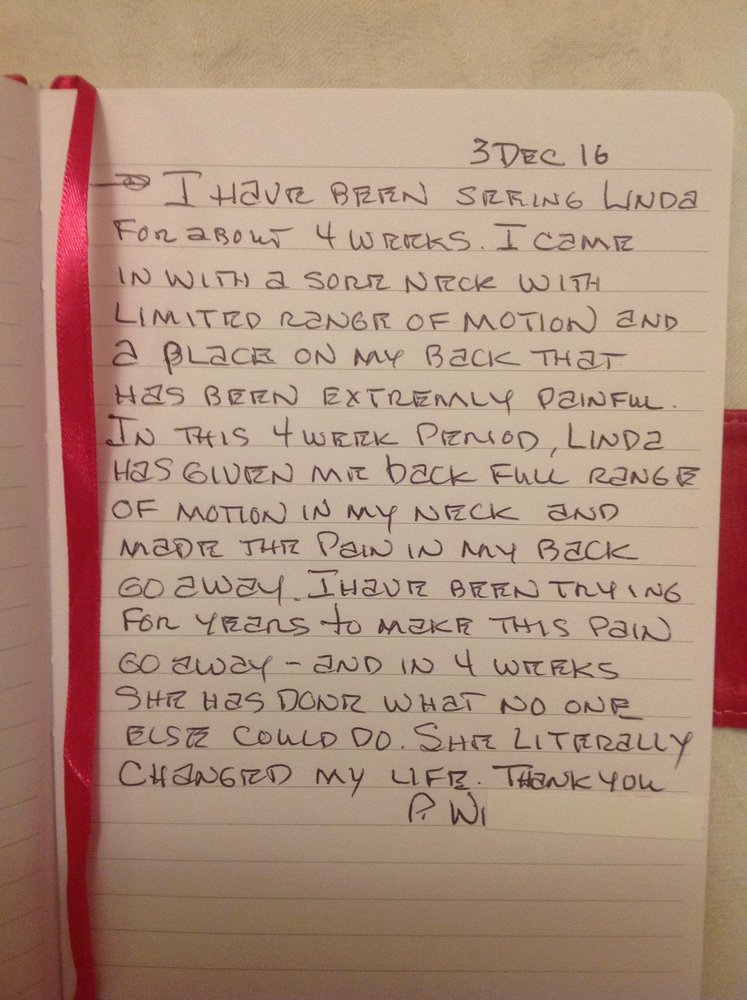 3 DEC 16
I HAVE BEEN SEEING LINDA
FOR ABOUT 4 WEEKS. I CAME
IN WITH A SORE NECK WITH
LIMITED RANGE OF MOTION AND
A PLACE ON MY BACK THAT
HAS BEEN EXTREMLY PAINFUL.
IN THIS 4 WEEK PERIOD, LINDA
HAS GIVEN ME back FULL RANGE
OF MOTION IN MY NECK AND
MADE THE PAIN IN MY BACK
GO AWAY. I HAVE BEEN TRYING
FOR YEARS to MAKE THIS PAIN
GO AWAY - AND IN 4 WEEKS
SHE HAS DONE WHAT NO ONE
ELSE COULD DO. SHE LITERALLY
CHANGED MY LIFE. THANK YOU
P. Wi